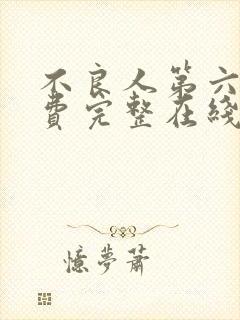 不良人第六
费完整在线
憶夢蕭